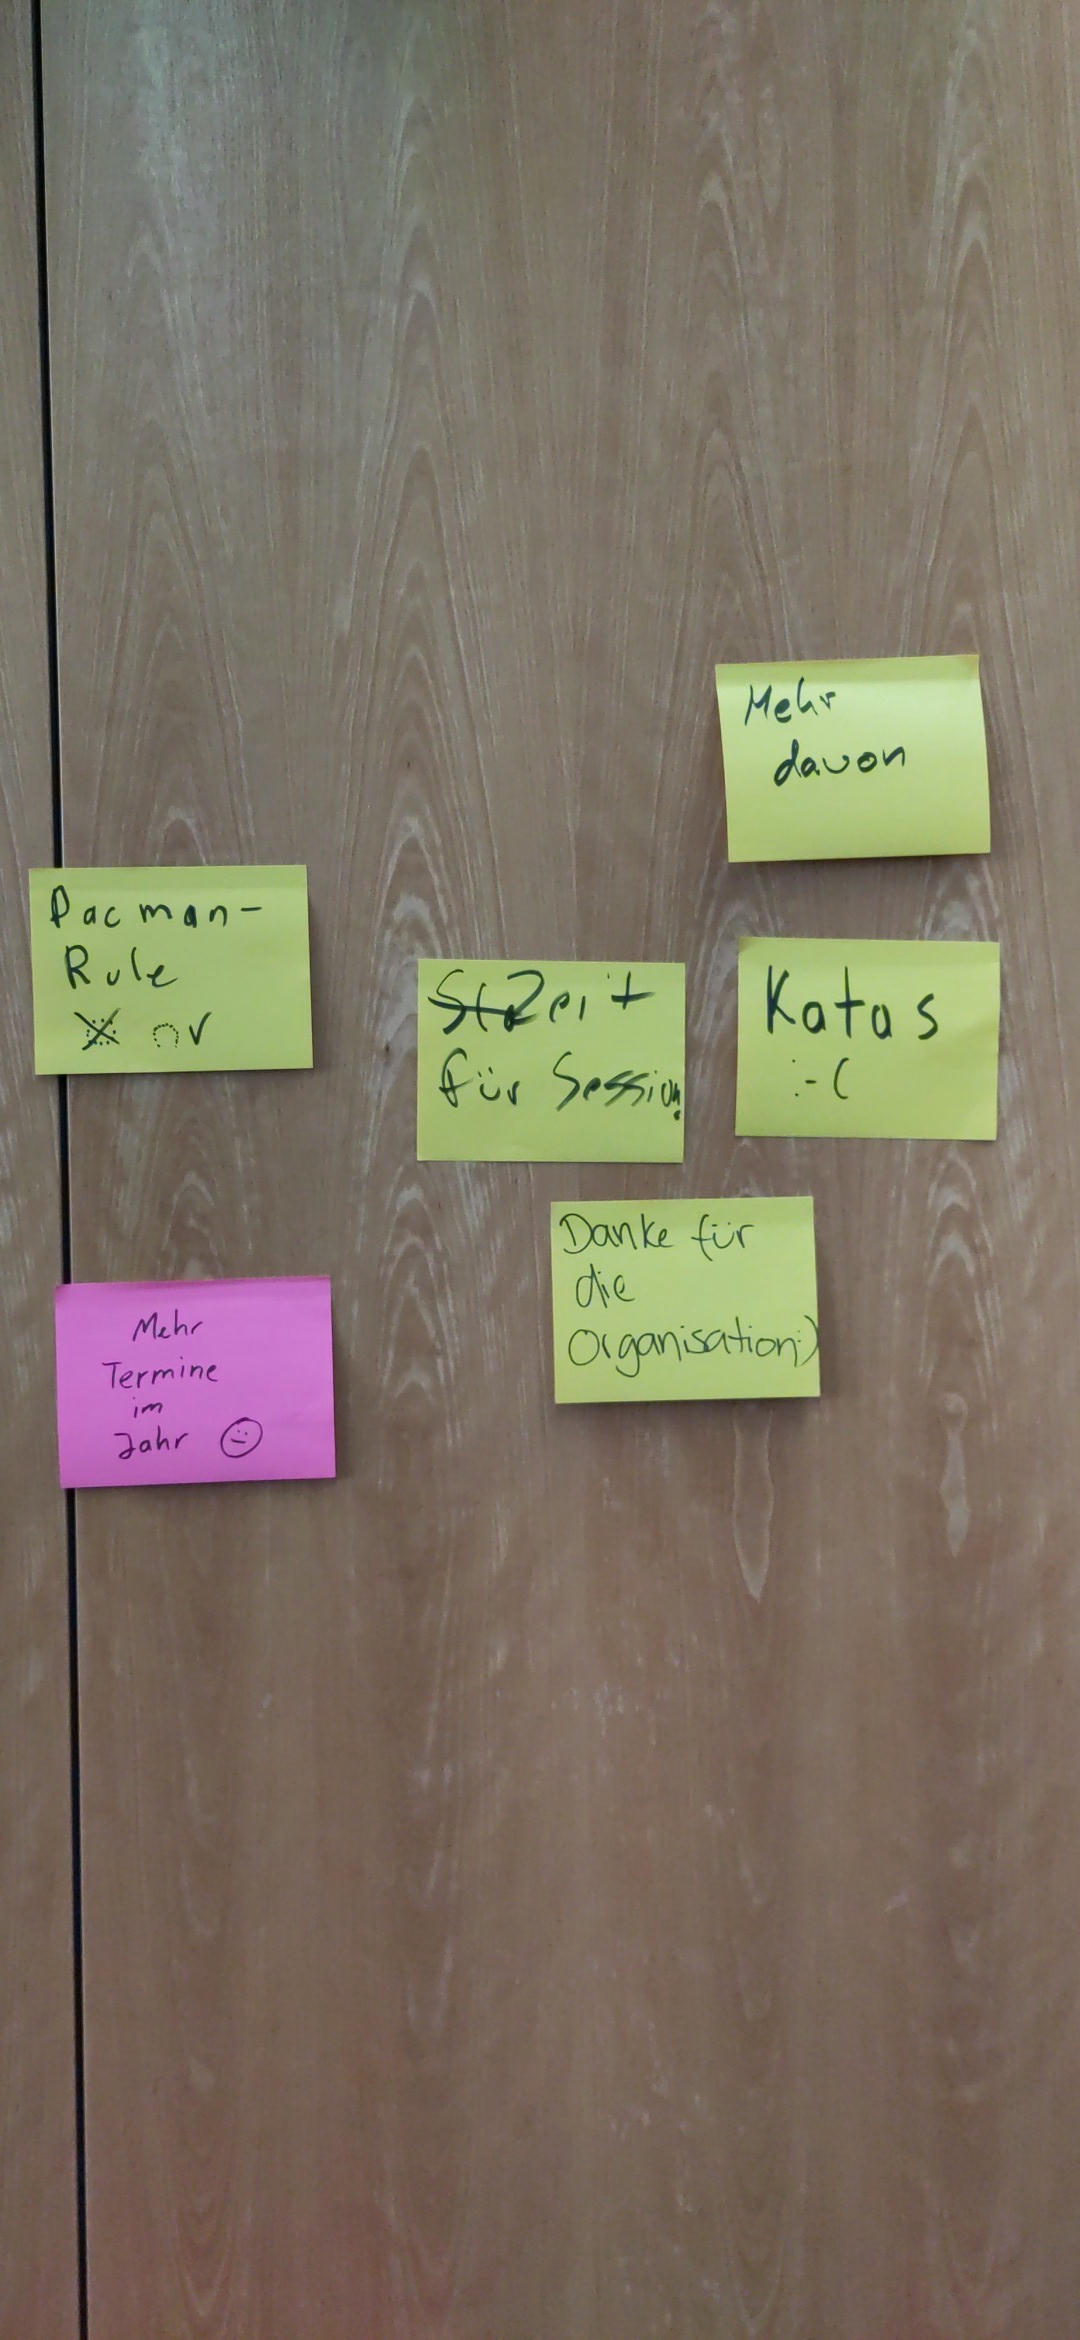 Mehr
davon
Pacman-
Rule
Zeit
für Session!
Katas
:-(
Danke für
die
Organisation:)
Mehr
Termine
im
Jahr